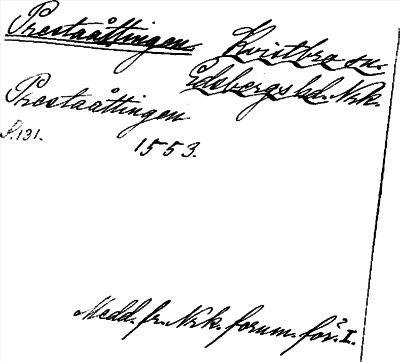 Prestaåttingen Kvistbro sn.
Edsbergs hd. Nrk.
Prestaåttingen
S. 131. 1553.
Medd. fr. Nrk. fornm. för. I.